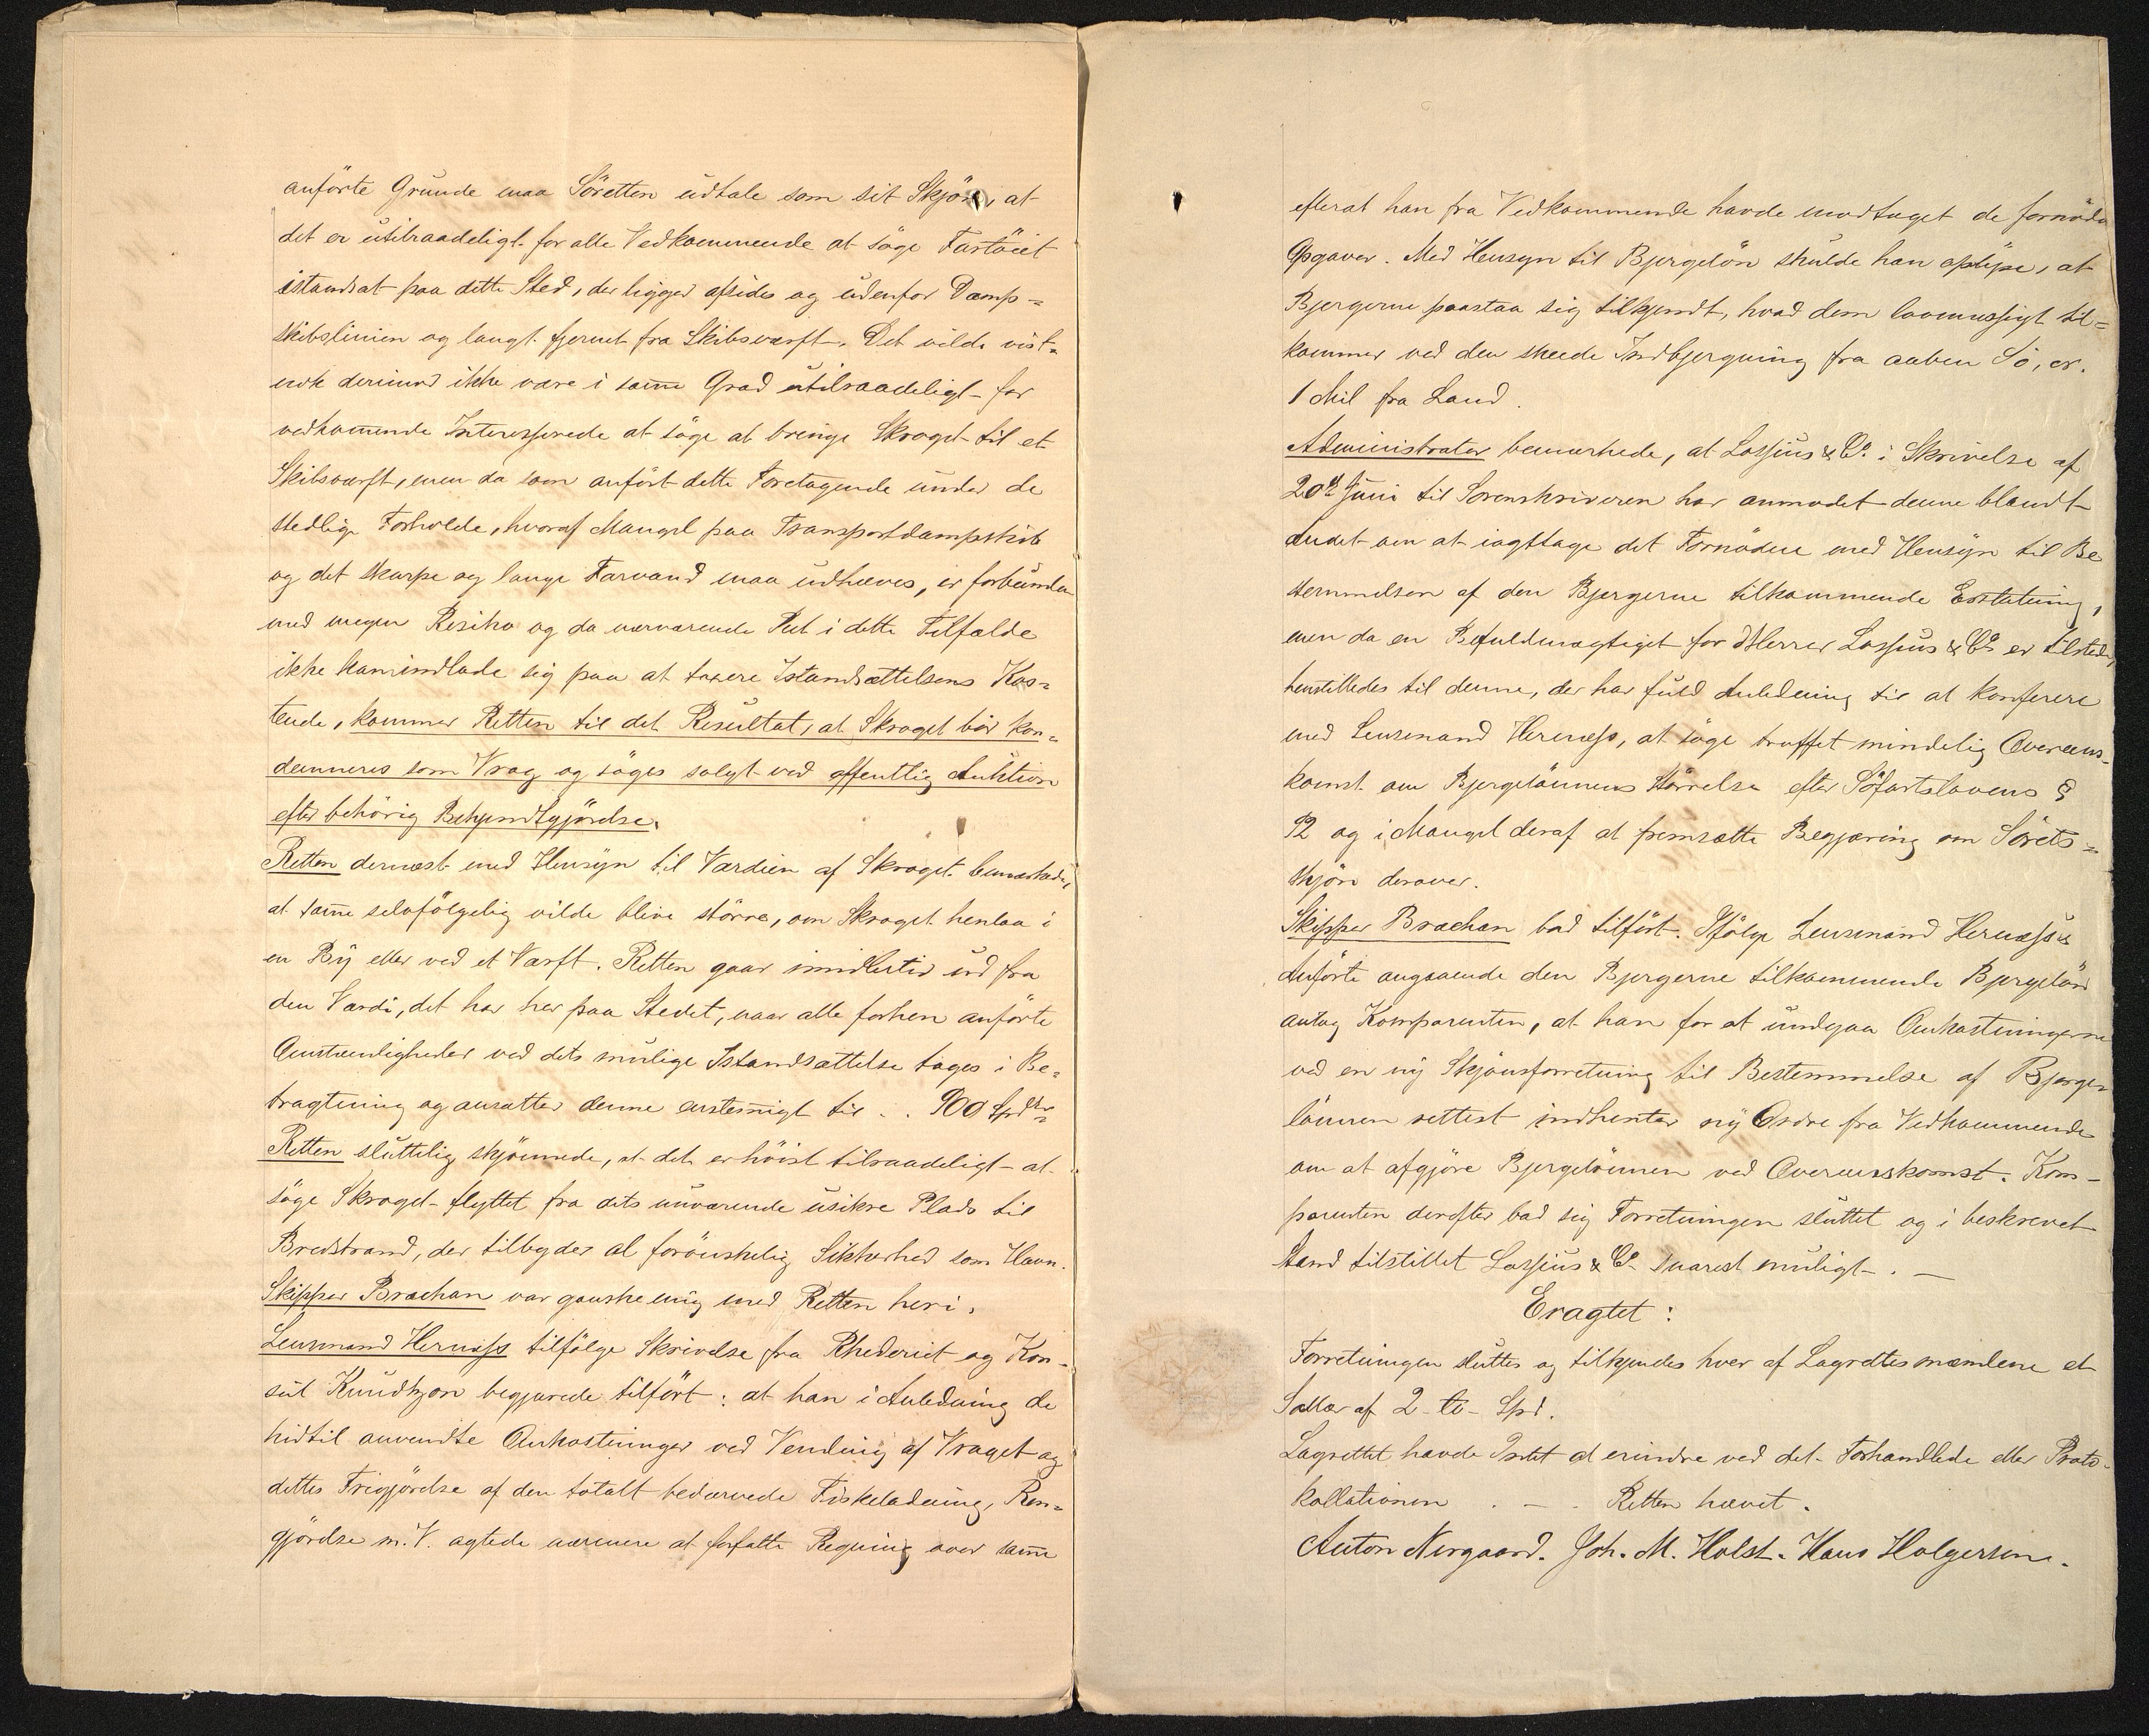 anförte Grunde maa Söretten udtale som sit Skjön, at
det er utilraadeligt for alle Vedkommende at söge Fartöiet
istandsat paa dette Sted, der ligger afsides og udenfor Damp=
skibslinien og langt fjernet fra Skibsværft. Det vilde vist=
nok derimod ikke være i samme Grad utilraadeligt for
vedkommende Interesserede at söge at bringe Skroget til et
Skibsværft, men da som anfört dette Foretagende under de
stedlige Forholde, hvoraf Mangel paa Transportdampskib
og det skarpe og lange Farvand maa udhæves, er forbunden
med megen Resiko og da nærværende Ret i dette Tilfælde
ikke kan indlade sig paa at taxere Istandsættelsens Kos=
tende, kommer Retten til det Resultat, at Skroget bör kon=
demneres som Vrag og söges solgt ved offentlig Auktion
efter behörig Bekjendtgjörelse.
Retten dernæst med Hensyn til Værdien af Skroget bemærkede,
at samme selvfölgelig vilde blive större, om Skroget henlaa i
en By eller ved et Værft. Retten gaar imidlertid ud fra
den Værdi, det har her paa Stedet, naar alle forhen anförte
Omstændigheder ved dets mulige Istandsættelse tages i Be=
tragtning og ansætter denne enstemmigt til . . 900 Spdlr
Retten sluttelig skjönnede, at det er höist tilraadeligt at
söge Skroget flyttet fra dets nuværende usikre Plads til
Bredstrand, der tilbyder al forönskelig Sikkerhed som Havn.
Skipper Brachan var ganske enig med Retten heri.
Lensmand Hernæss tilfölge Skrivelse fra Rhederiet og Kon-
sul Knudtzon begjærede tilfört: at han i Anledning de
hidtil anvendte Omkostninger ved Vending af Vraget og
dettes Frigjörelse af den totalt bedærvede Fiskeladning, Ren=
gjörelse m. V. agtede nærmere at forfatte Regning over samme
efterat han fra Vedkommende havde modtaget de fornödne
Opgaver. Med Hensyn til Bjergelön skulde han oplyse, at
Bjergerne paastaa sig tilkjendt, hvad dem lovmæssigt til=
kommer ved den skeede Indbjergning fra aaben Sö, cr.
1 Mil fra Land.
Administrator bemærkede, at Lossius & Co. i Skrivelse af
20de Juni til Sorenskriveren har anmodet denne blandt
Andet om at iagttage det Fornödne med Hensyn til Be
stemmelsen af den Bjergerne tilkommende Erstatning,
men da en Befuldmægtiget for Herrer Lossius & Co er tilstede,
henstilledes til denne, der har fuld Anledning til at konferere
med Lensmand Hernæss, at söge truffet mindelig Overens-
komst om Bjergelönnens Störrelse efter Söfartslovens §
92 og i Mangel deraf at fremsætte Begjæring om Sörets=
skjön derover.
Skipper Brachan bad tilfört. Ifölge Lensmand Hernæss's
Anförte angaaende den Bjergerne tilkommende Bjergelön
antog Komparenten, at han for at undgaa Omkostningerne
ved en ny Skjönsforretning til Bestemmelse af Bjerge-
lönnen rettest indhenter ny Ordre fra Vedkommende
om at afgjöre Bjergelönnen ved Overenskomst. Kom-
parenten derefter bad sig Forretningen sluttet og i beskrevet
Stand tilstillet Lossius & Co snarest muligt. —
Eragtet:
Forretningen sluttes og tilkjendes hver af Lagrettesmændene et
Salær af 2 - to - Spd.
Lagrettet havde Intet at erindre ved det Forhandlede eller Proto-
kollationen . — . Retten hævet.
Anton Nergaard. Joh. M. Holst. Hans Holgersen.